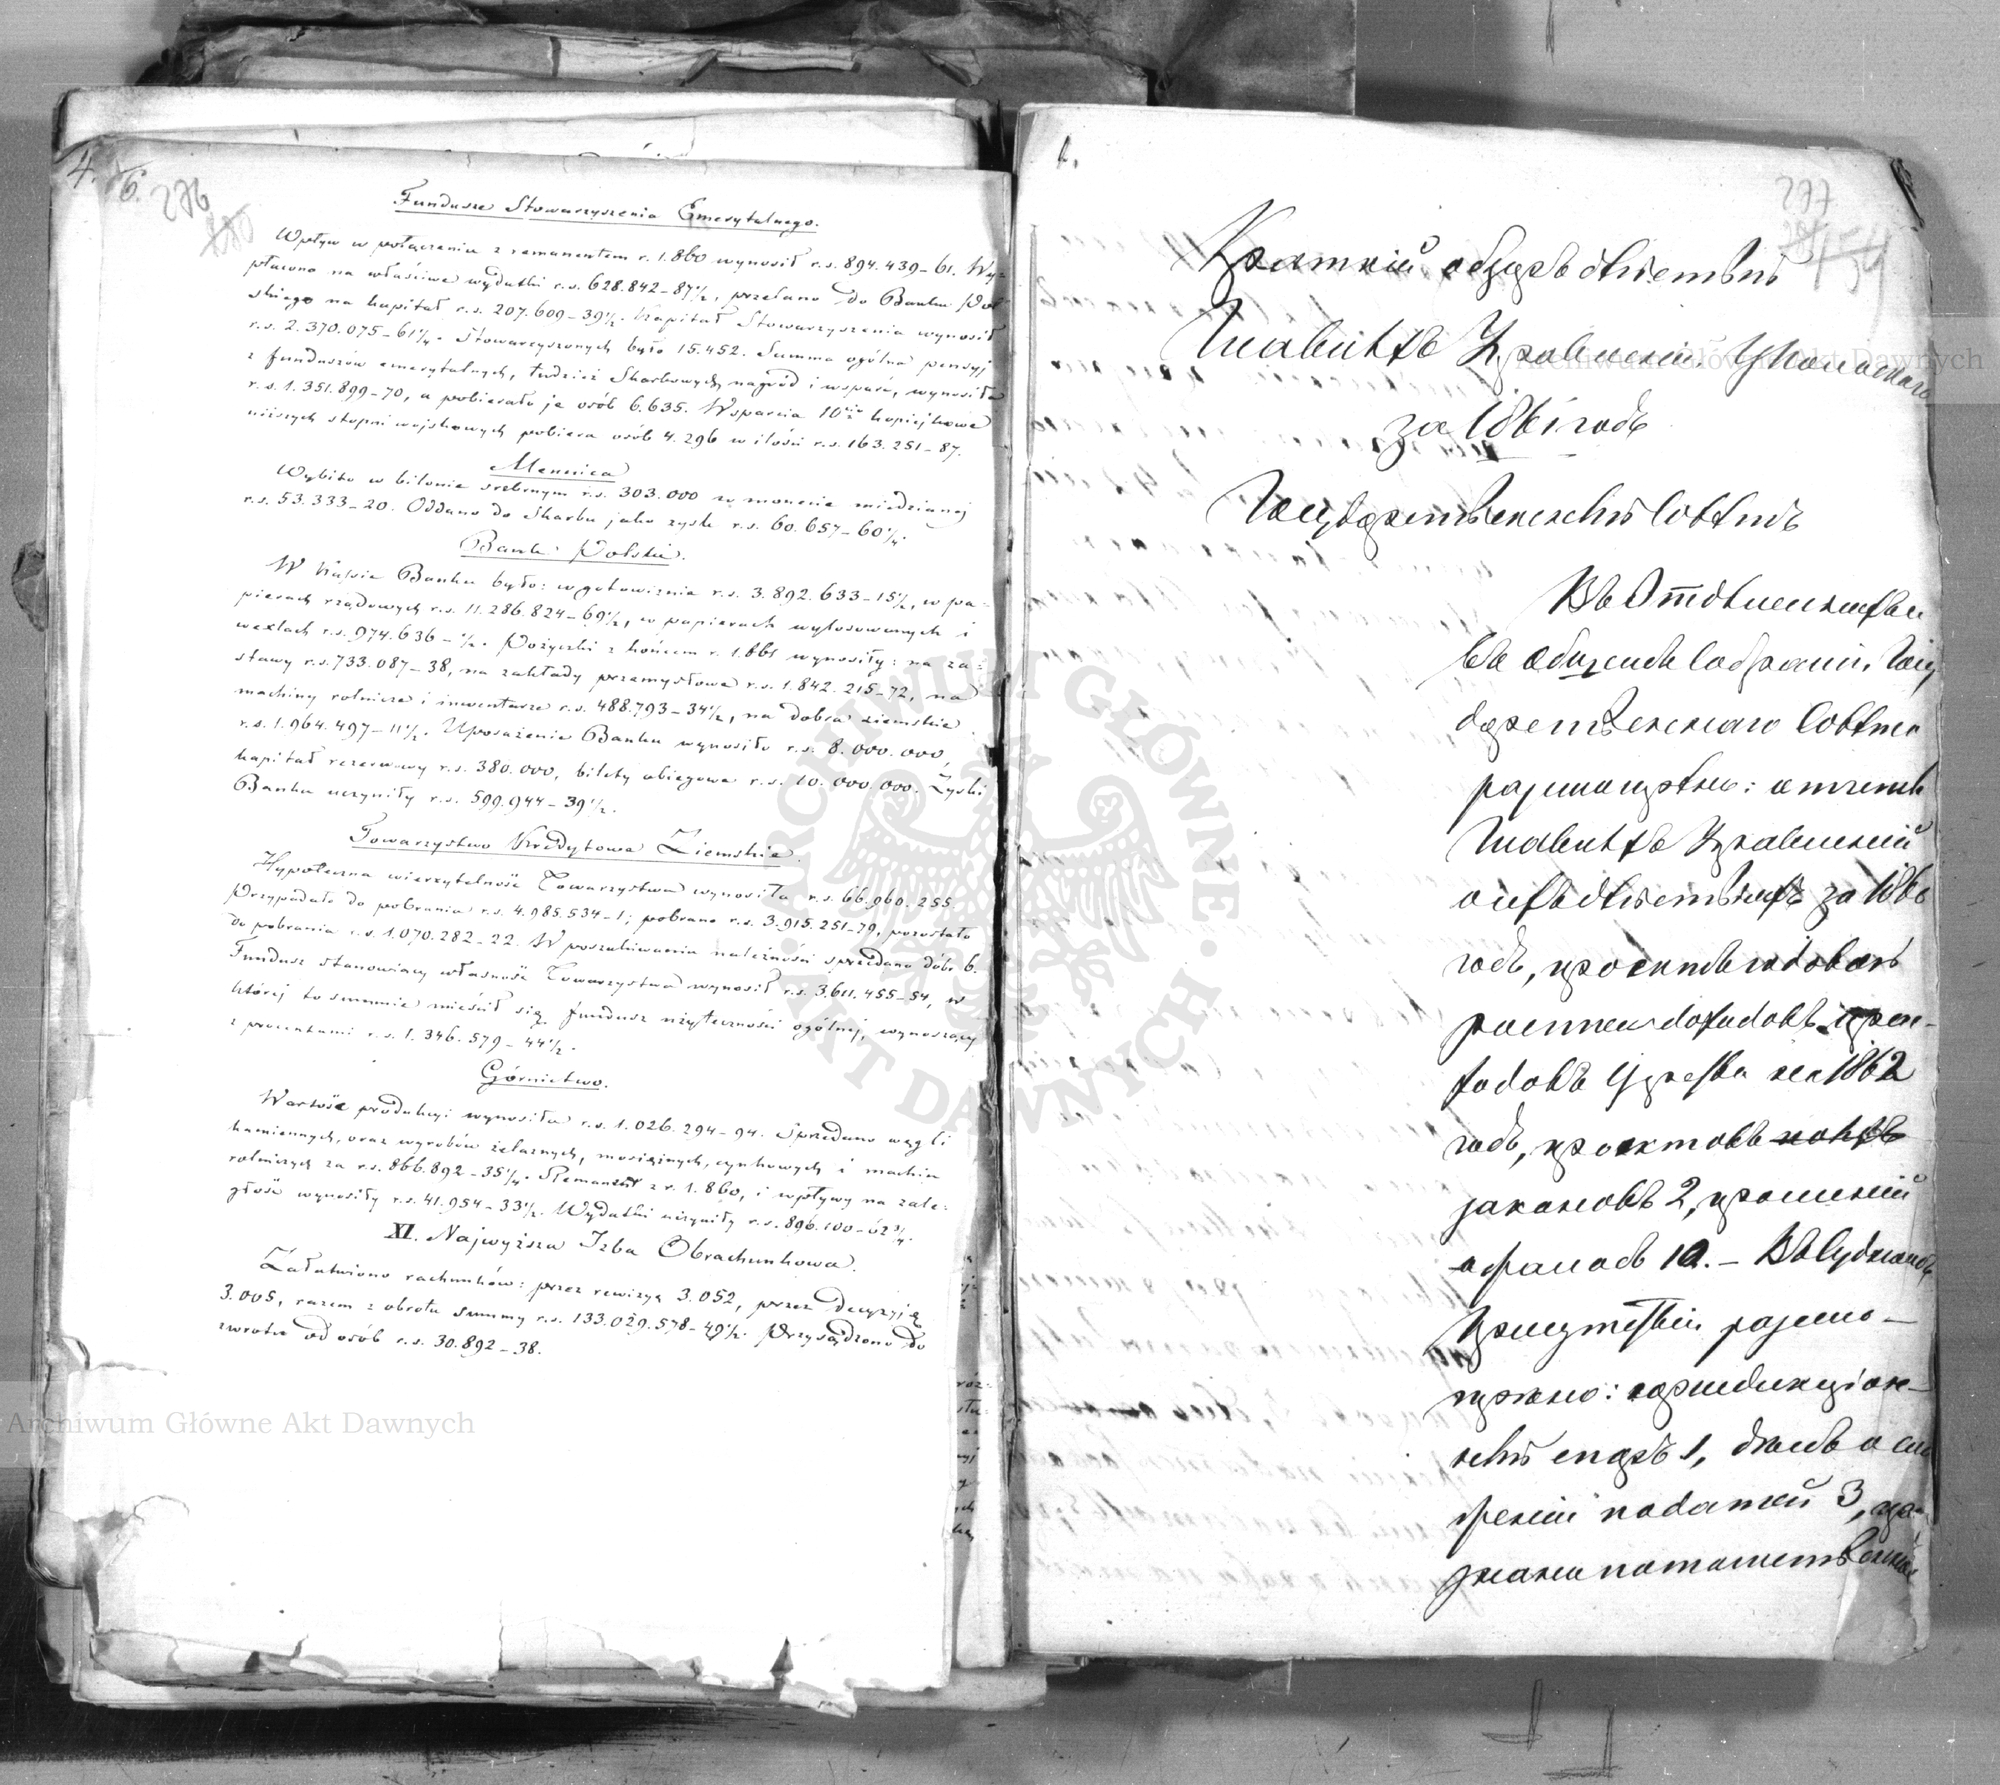 4. 76. 276
Fundusze Stowarzyszenia Emerytalnego.
Wpływ w połączeniu z remanentem r. 1.860 wynosił r.s. 894.439–61. Wy-
płacono na właściwe wydatki r.s. 628.842–87½, przelano do Banku Pol-
skiego na kapitał r.s. 207.609–39½. Kapitał Stowarzyszenia wynosił
r.s. 2.370.075–61¼. Stowarzyszonych było 15.452. Summa ogólna pensyj
z funduszów emerytalnych, tudzież Skarbowych nagród i wsparć, wynosiła
r.s. 1.351.899–70, a pobierało je osób 6.635. Wsparcia 10cio kopiejkowe
niższych stopni wojskowych pobiera osób 4.296 w ilości r.s. 163.251–87.
Mennica
Wybito w bilonie srebrnym r.s. 303.000 w monecie miedzianej
r.s. 53.333–20. Oddano do Skarbu jako zysk r.s. 60.657–60¼.
Bank Polski.
W Kassie Banku było: w gotowiznie r.s. 3.892.633–15½, w pa-
pierach rządowych r.s. 11.286.824–69½, w papierach wylosowanych i
wexlach r.s. 974.636–½. Pożyczki z końcem r. 1.861 wynosiły: na za-
stawy r.s. 733.087–38, na zakłady przemysłowe r.s. 1.842.215–72, na
machiny rolnicze i inwentarze r.s. 488.793–34½, na dobra ziemskie
r.s. 1.964.497–11½. Uposażenie Banku wynosiło r.s. 8.000.000,
kapitał rezerwowy r.s. 380.000, bilety obiegowe r.s. 10.000.000. Zyski
Banku uczyniły r.s. 599.944–39½.
Towarzystwo Kredytowe Ziemskie.
Hypoteczna wierzytelność Towarzystwa wynosiła r.s. 66.960.255.
Przypadało do pobrania r.s. 4.985.534–1; pobrano r.s. 3.915.251–79, pozostało
do pobrania r.s. 1.070.282–22. W poszukiwaniu należności sprzedano dóbr 6.
Fundusz stanowiący własność Towarzystwa wynosił r.s. 3.611.455–54, w
której to summie mieścił się fundusz użyteczności ogólnej, wynoszący
z procentami r.s. 1.346.579–44½.
Górnictwo.
Wartość produkcyi wynosiła r.s. 1.026.294–94. Sprzedano węgli
kamiennych, oraz wyrobów żelaznych, mosiężnych, cynkowych i machin
rolniczych za r.s. 866.892–35¼. Remanent z r. 1.860, i wpływy na zale-
głość wynosiły r.s. 41.954–33½. Wydatki uczyniły r.s. 896.100–02¾.
XI. Najwyższa Izba Obrachunkowa.
Załatwiono rachunków: przez rewizyą 3.052, przez decyzyją
3.005, razem z obrotu summy r.s. 133.029.578–49½. Przysądzono do
zwrotu od osób r.s. 30.892–38.
1.
277
Краткій обзоръ дѣйствій
Главнѣйш Правленій Царства Польскаго
за 1861 годъ
Государственный Совѣтъ
Въ Отдѣленіяхъ и
въ Общемъ Собраніи Госу
дарственнаго Совѣта
разсмотрѣно: отчетъ
о ихъ дѣйствіяхъ за 1860
годъ, проектъ годовой
росписи доходовъ и рас-
ходовъ Царства на 1862
годъ, проектовъ
законовъ 2, прошеній
о 10. – Въ Судебномъ
Присутствіи разсмо-
трѣно: юрисдикціон-
ный споръ 1, дѣлъ о сло
женіи податей 3, при
знанію потомственнаго
ARCHIWUM GŁÓWNE AKT DAWNYCH
Archiwum Główne Akt Dawnych
Archiwum Główne Akt Dawnych